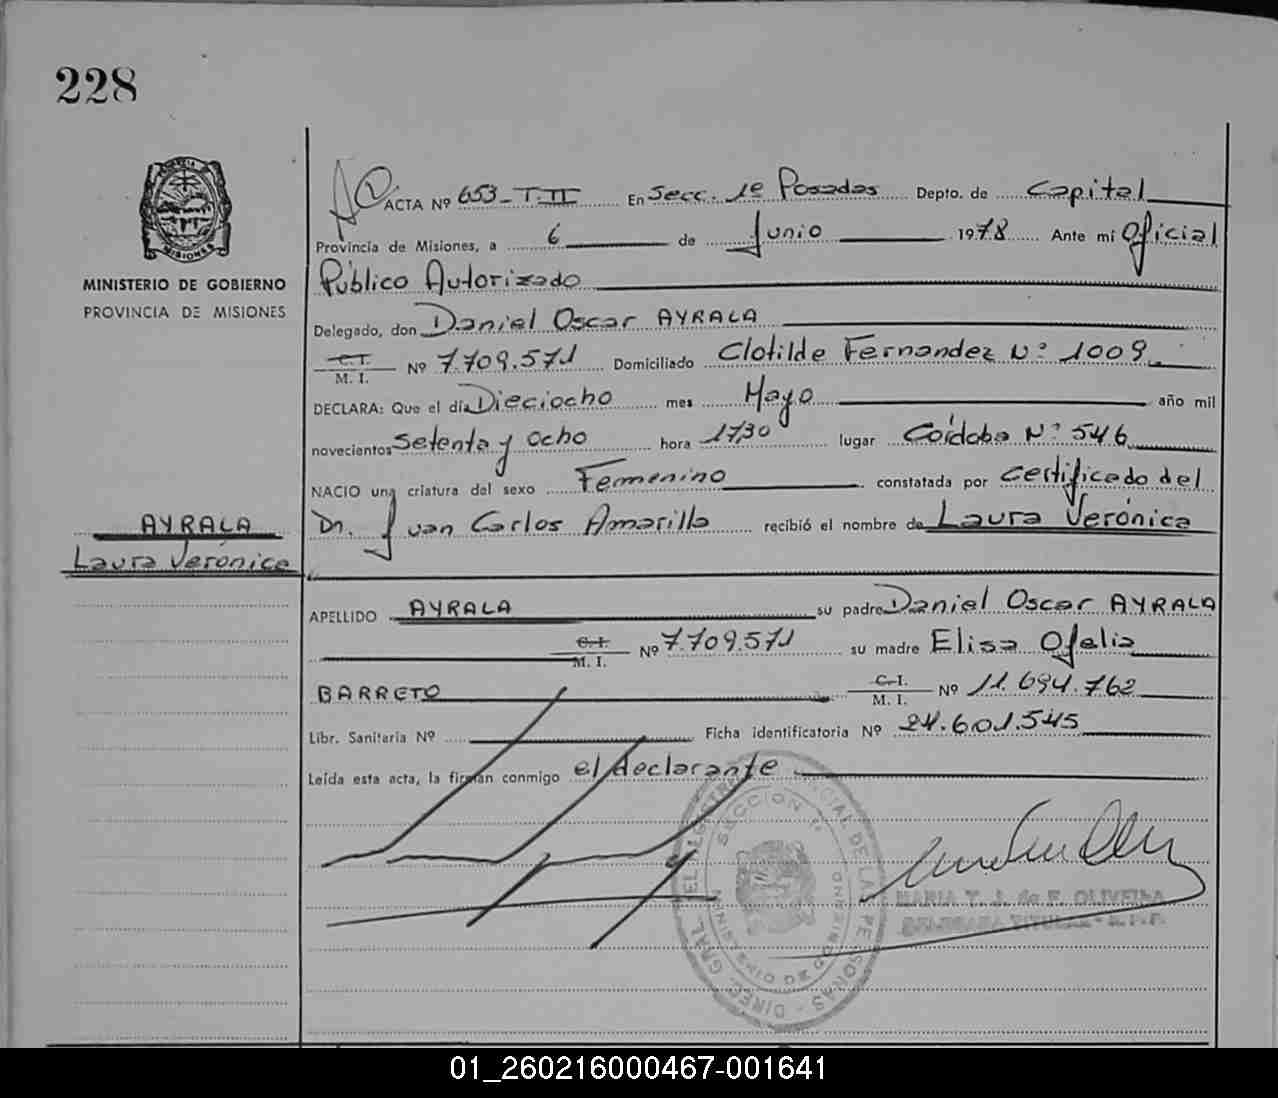 228
MISIONES
MINISTERIO DE GOBIERNO
PROVINCIA DE MISIONES
ACTA Nº 653-T.II En Secc. 1º Posadas Depto. de Capital
Provincia de Misiones, a 6 de Junio 1978 Ante mi Oficial
Público Autorizado
Delegado, don Daniel Oscar AYRALA
C.I. M. I. Nº 7.709.571 Domiciliado Clotilde Fernandez Nº 1009
DECLARA: Que el día Dieciocho mes Mayo año mil
novecientos Setenta y Ocho hora 1730 lugar Córdoba Nº 546
NACIO una criatura del sexo Femenino constatada por Certificado del
Dr. Juan Carlos Amarilla recibió el nombre de Laura Verónica
AYRALA
Laura Verónica
APELLIDO AYRALA su padre Daniel Oscar AYRALA
C.I. M. I. Nº 7.709.571 su madre Elisa Ofelia
BARRETO C.I. M. I. Nº 11.694.762
Libr. Sanitaria Nº Ficha identificatoria Nº 24.601.545
Leída esta acta, la firman conmigo el declarante
SECCION 1ª
DE LAS PERSONAS - DIREC. GRAL.
MARIA T. J. de F. OLIVEIRA
DELEGADA TITULAR
01_260216000467-001641